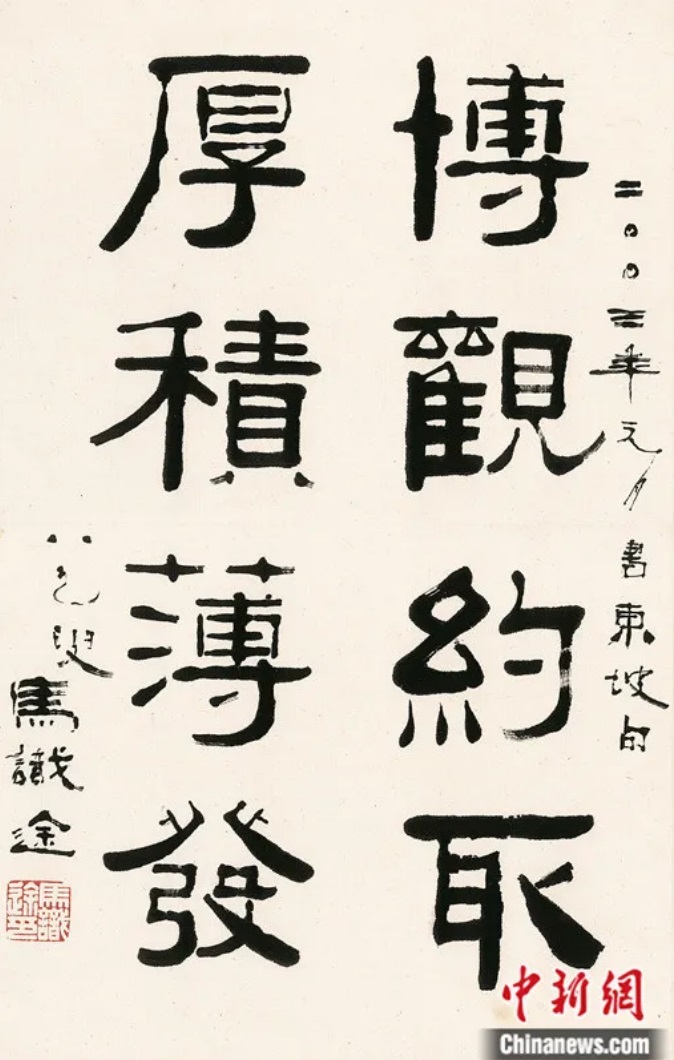 二〇〇三年元月書東坡句
博觀約取
厚積薄發
八九叟馬識途
馬識途印
中新網
Chinanews.com